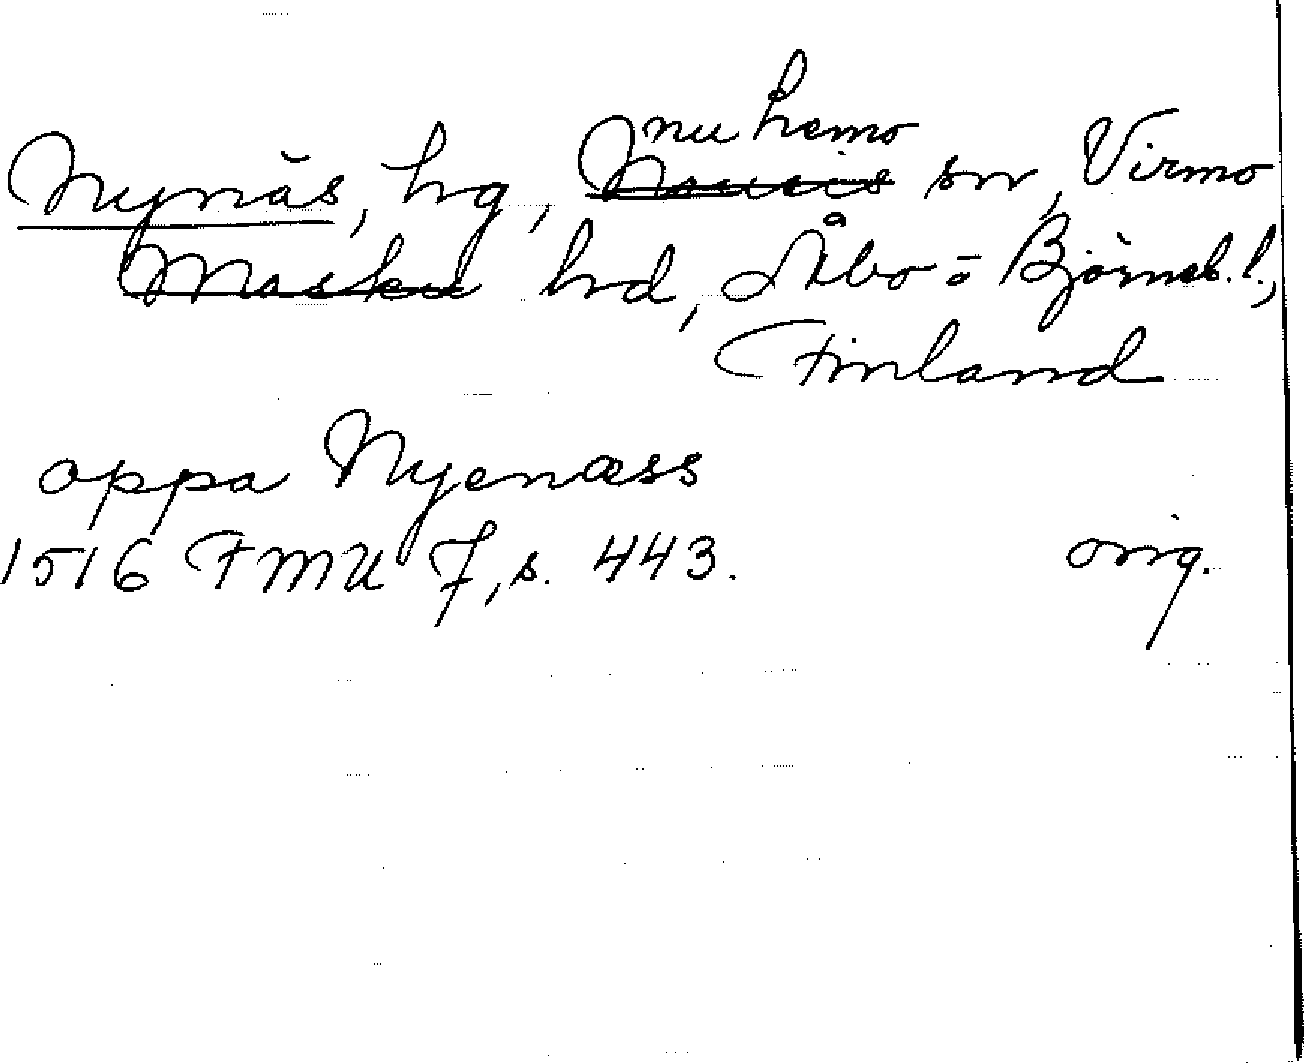 nu Lemo
Nynäs, hg, Nousis sn, Virmo
Masku hd, Åbo o Björneb. l.,
Finland
oppa Nyenæss
1516 FMU 7, s. 443. orig.